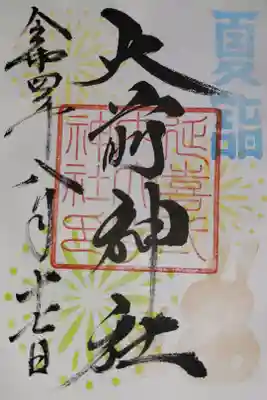 夏詣
大前神社
延喜式
神社印
令和四年八月十七日